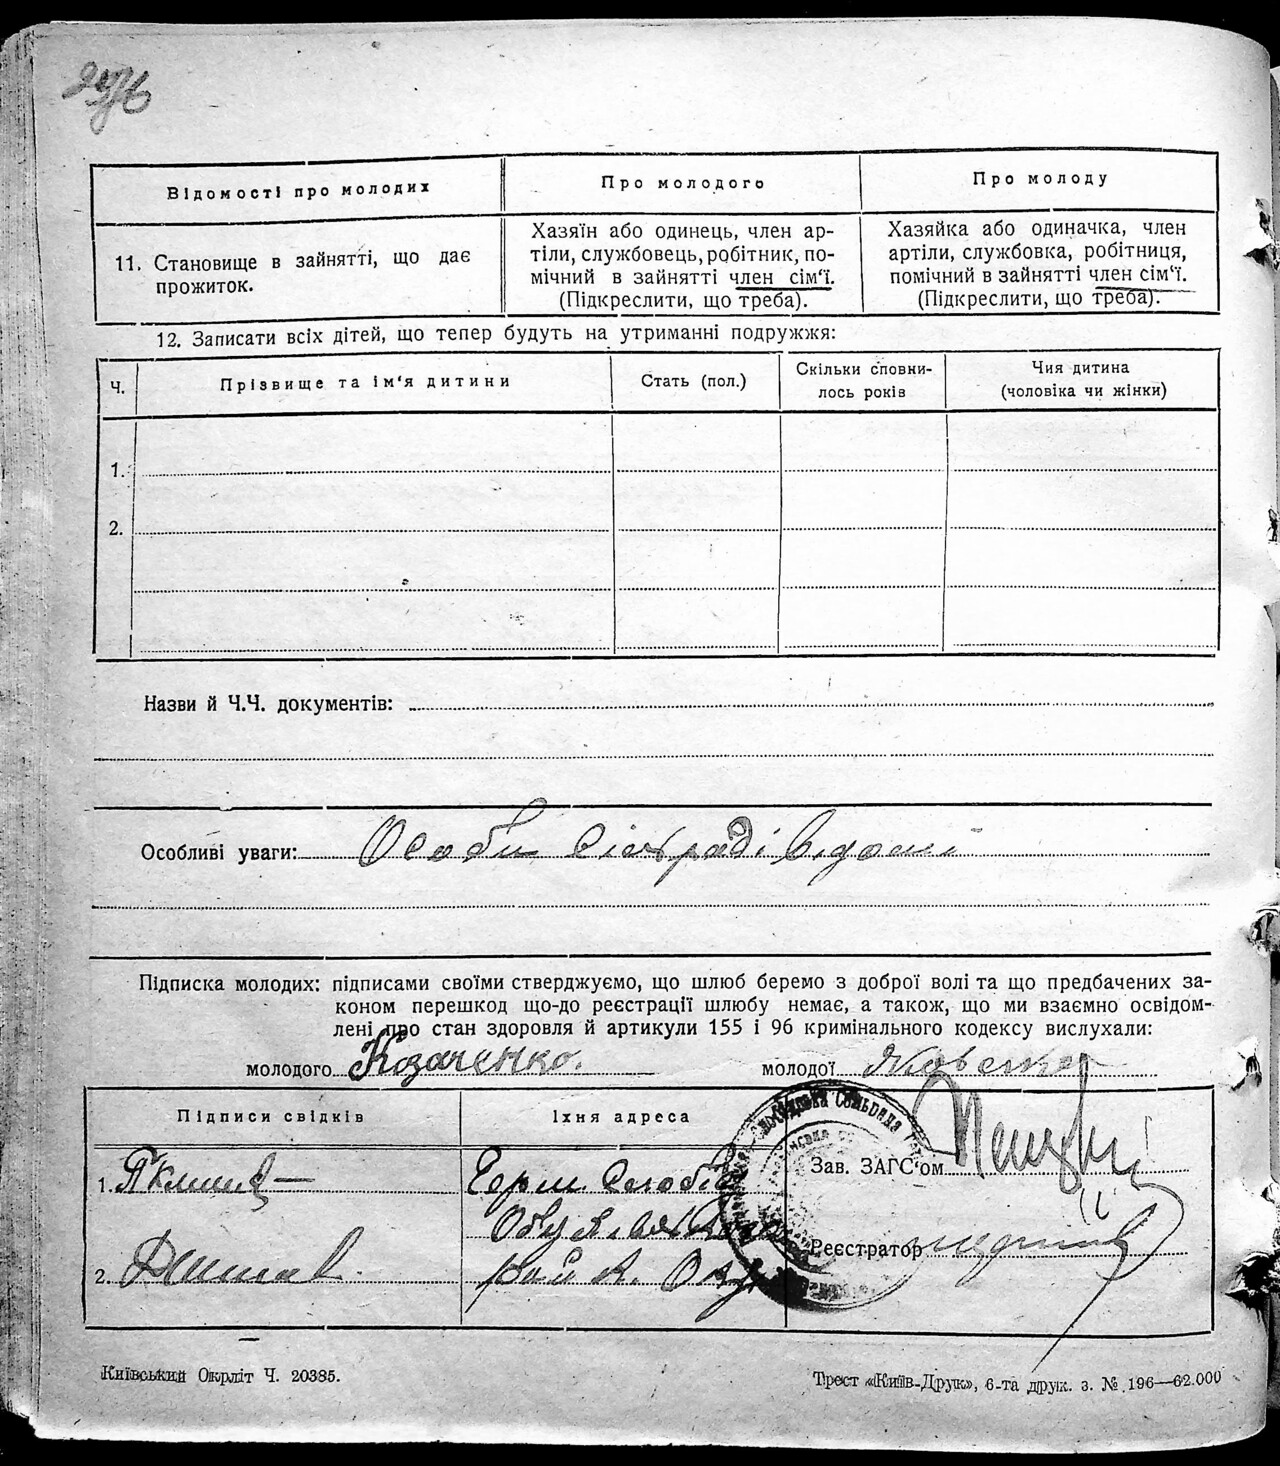 Відомості про молодих
Про молодого
Про молоду
11. Становище в зайнятті, що дає прожиток.
Хазяїн або одинець, член ар-
тіли, службовець, робітник, по-
мічний в зайнятті член сім'ї.
(Підкреслити, що треба).
Хазяйка або одиначка, член
артіли, службовка, робітниця,
помічний в зайнятті член сім'ї.
(Підкреслити, що треба).
12. Записати всіх дітей, що тепер будуть на утриманні подружжя:
Ч.
Прізвище та ім'я дитини
Стать (пол.)
Скільки сповни-
лось років
Чия дитина
(чоловіка чи жінки)
1.
2.
Назви й Ч.Ч. документів:
Особливі уваги: Особи сільраді відомі
Підписка молодих: підписами своїми стверджуємо, що шлюб беремо з доброї волі та що предбачених за-
коном перешкод що-до реєстрації шлюбу немає, а також, що ми взаємно освідом-
лені про стан здоровля й артикули 155 і 96 кримінального кодексу вислухали:
молодого Козаченко. молодої
Підписи свідків
Їхня адреса
Зав. ЗАГС'ом
1.
2.
Реєстратор
Київський Окрліт Ч. 20385.
Трест «Київ-Друк», 6-та друк. з. № 196—62.000